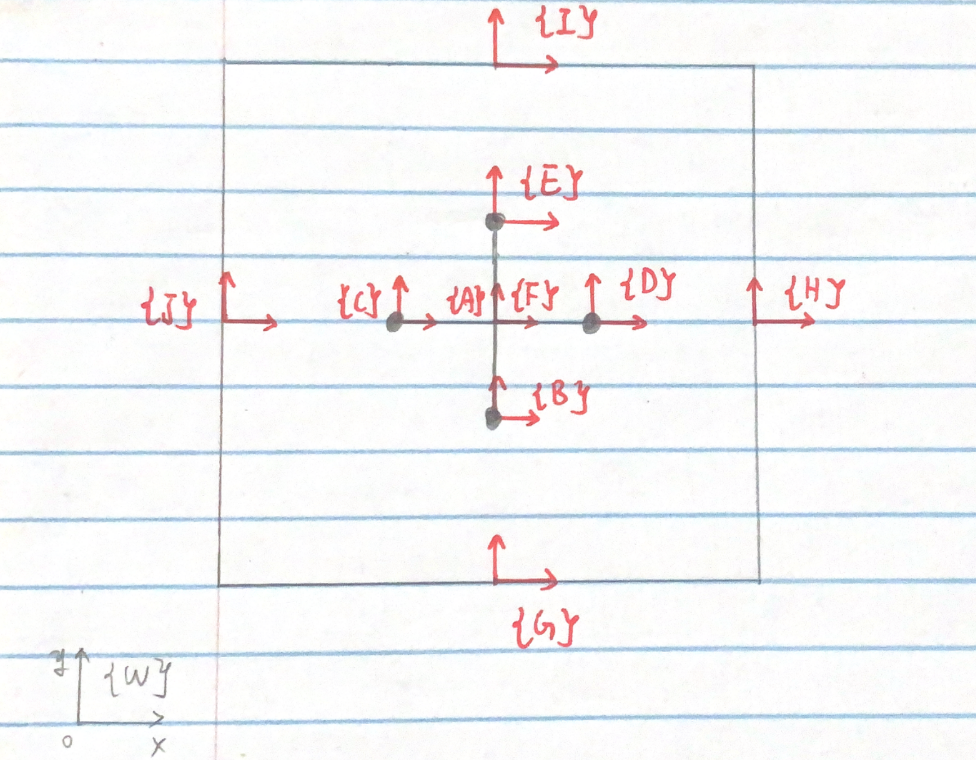 {I}
{E}
{J} {C} {A} {F} {D} {H}
{B}
{G}
y {W}
o x